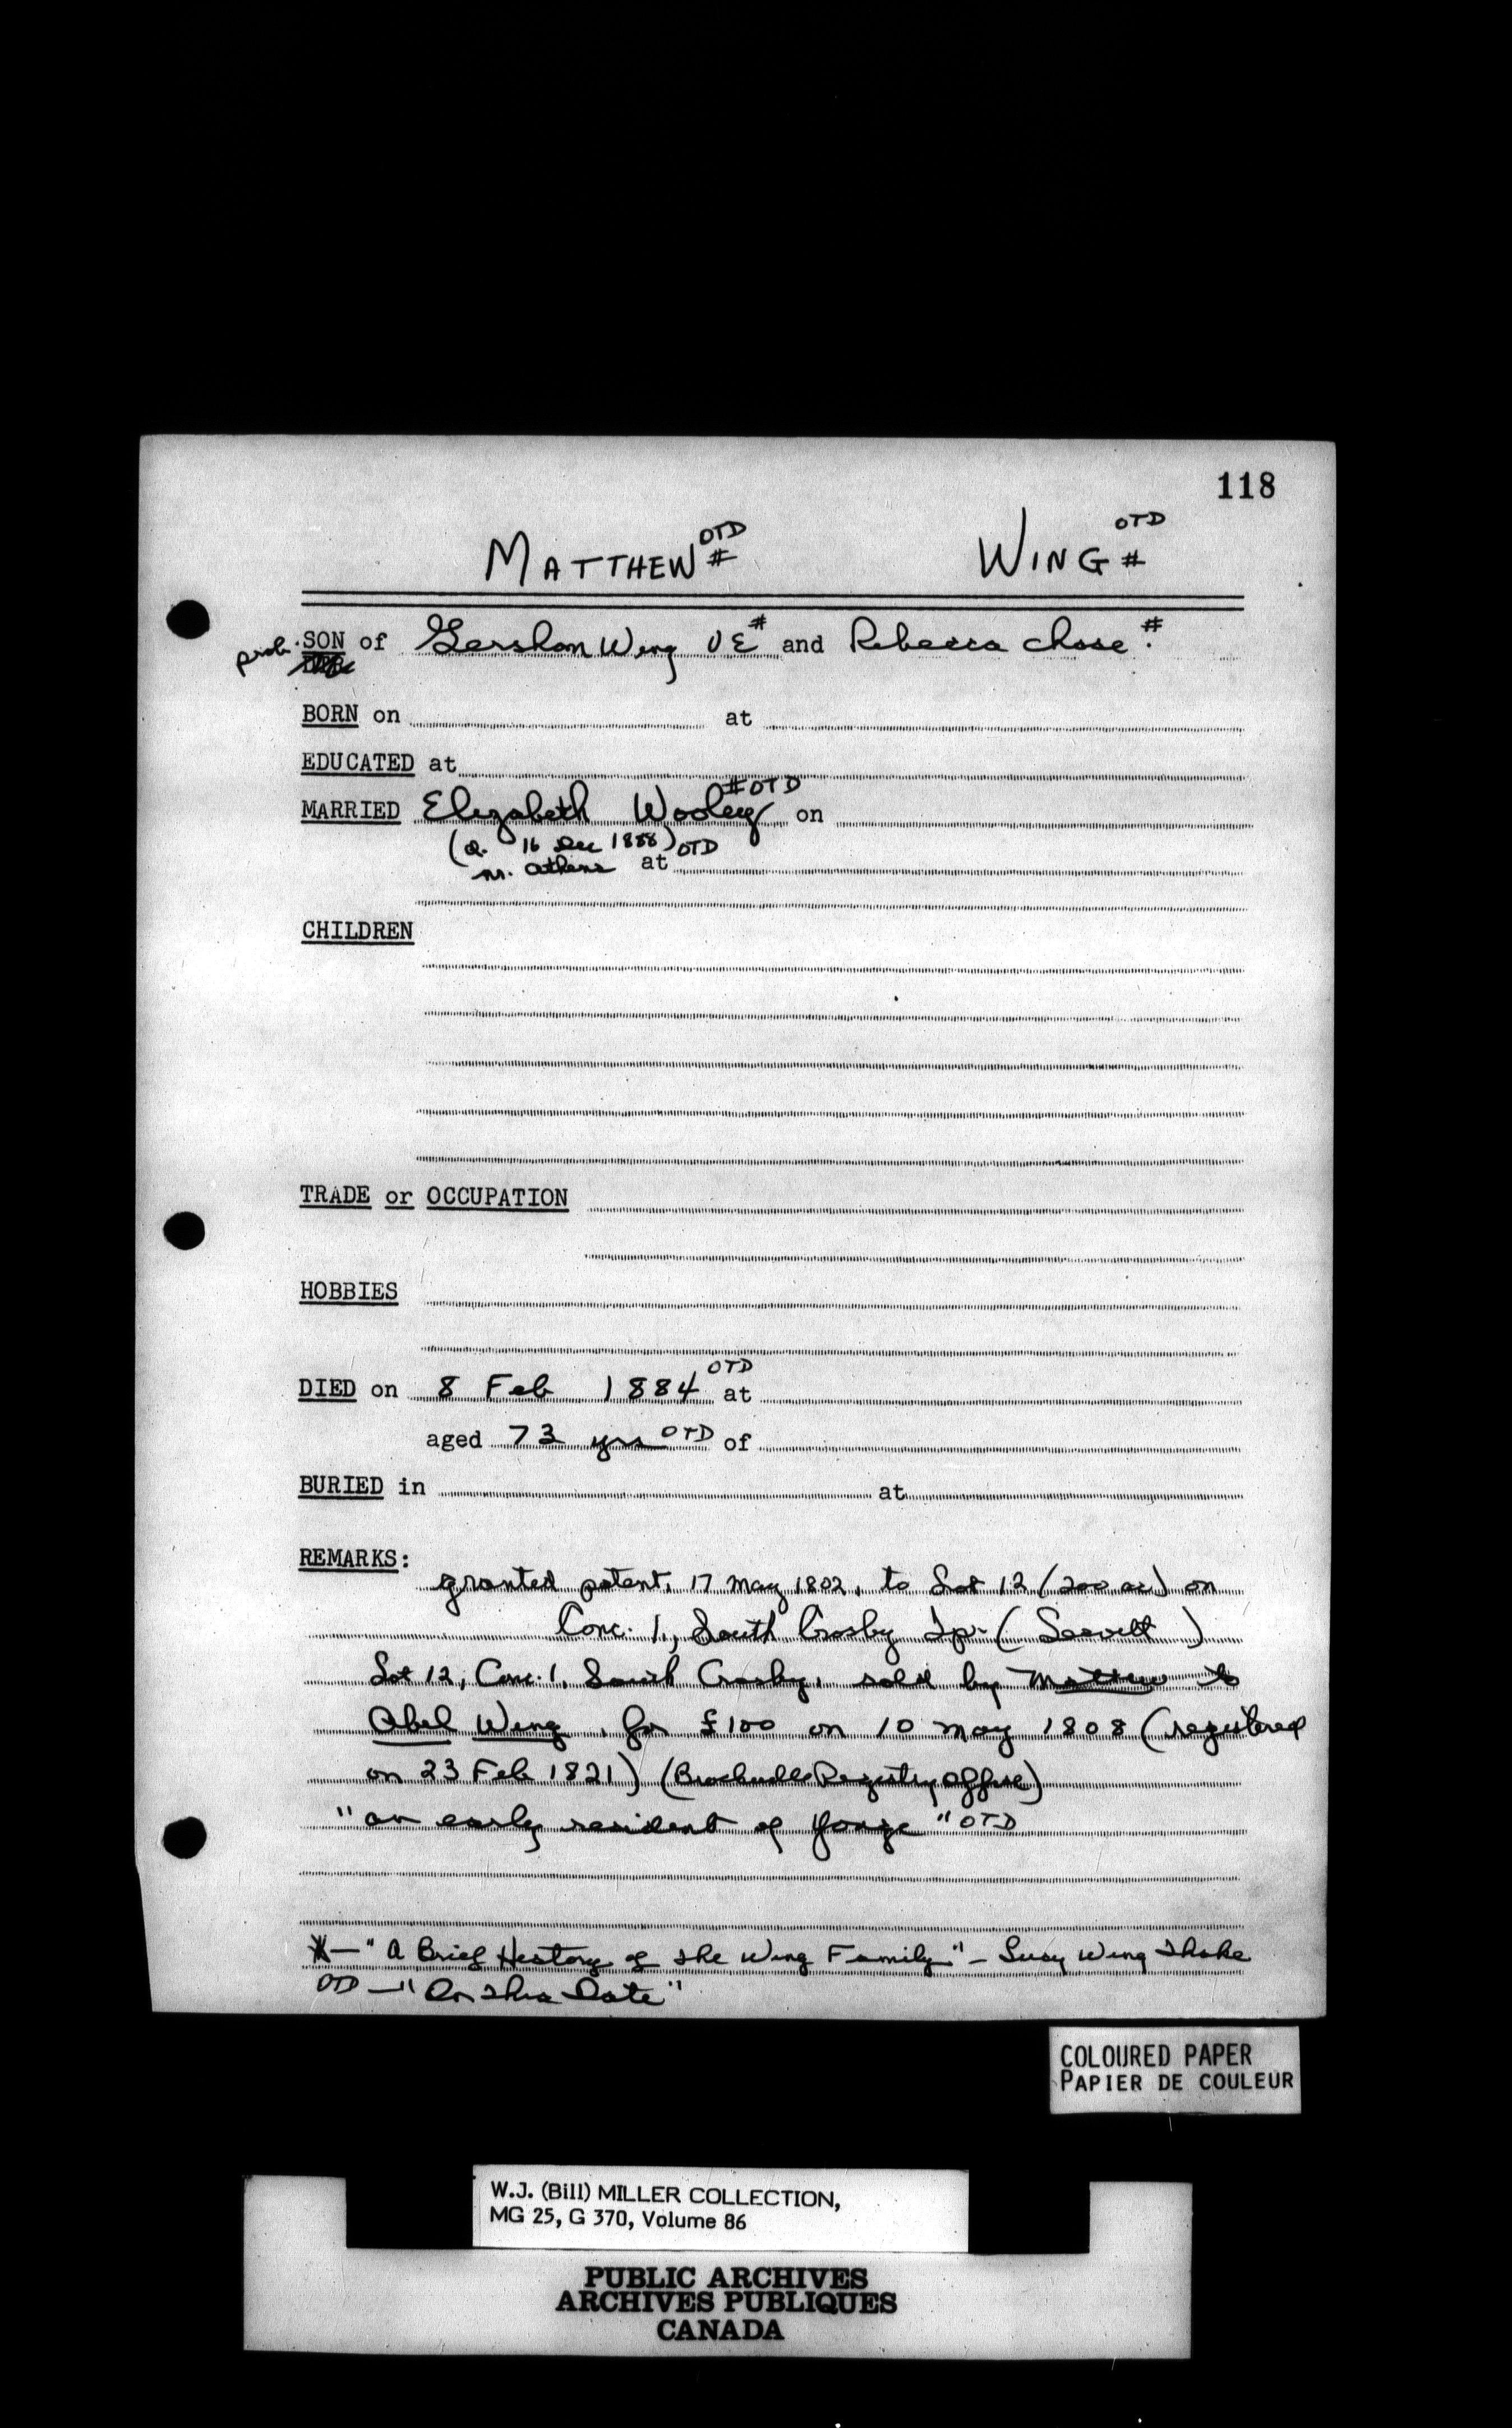 118
MATTHEW # OTD WING # OTD
prob. SON of Gershon Wing UE # and Rebecca Chase. #
BORN on at
EDUCATED at
MARRIED Elizabeth Wooley # OTD on
(d. 16 Dec 1888) OTD
nr. Athens at
CHILDREN
TRADE or OCCUPATION
HOBBIES
DIED on 8 Feb 1884 OTD at
aged 73 yrs OTD of
BURIED in at
REMARKS:
granted patent, 17 May 1802, to Lot 12 (200 ac) on
Conc. 1, South Crosby Tp. (Leavitt)
Lot 12, Conc. 1, South Crosby, sold by Matthew to
Abel Wing, for £100 on 10 May 1808 (registered
on 23 Feb 1821) (Brockville Registry Office)
"an early resident of Yonge" OTD
# — "A Brief History of the Wing Family" - Lucy Wing
OTD — "On This Date"
COLOURED PAPER
PAPIER DE COULEUR
W.J. (Bill) MILLER COLLECTION,
MG 25, G 370, Volume 86
PUBLIC ARCHIVES
ARCHIVES PUBLIQUES
CANADA